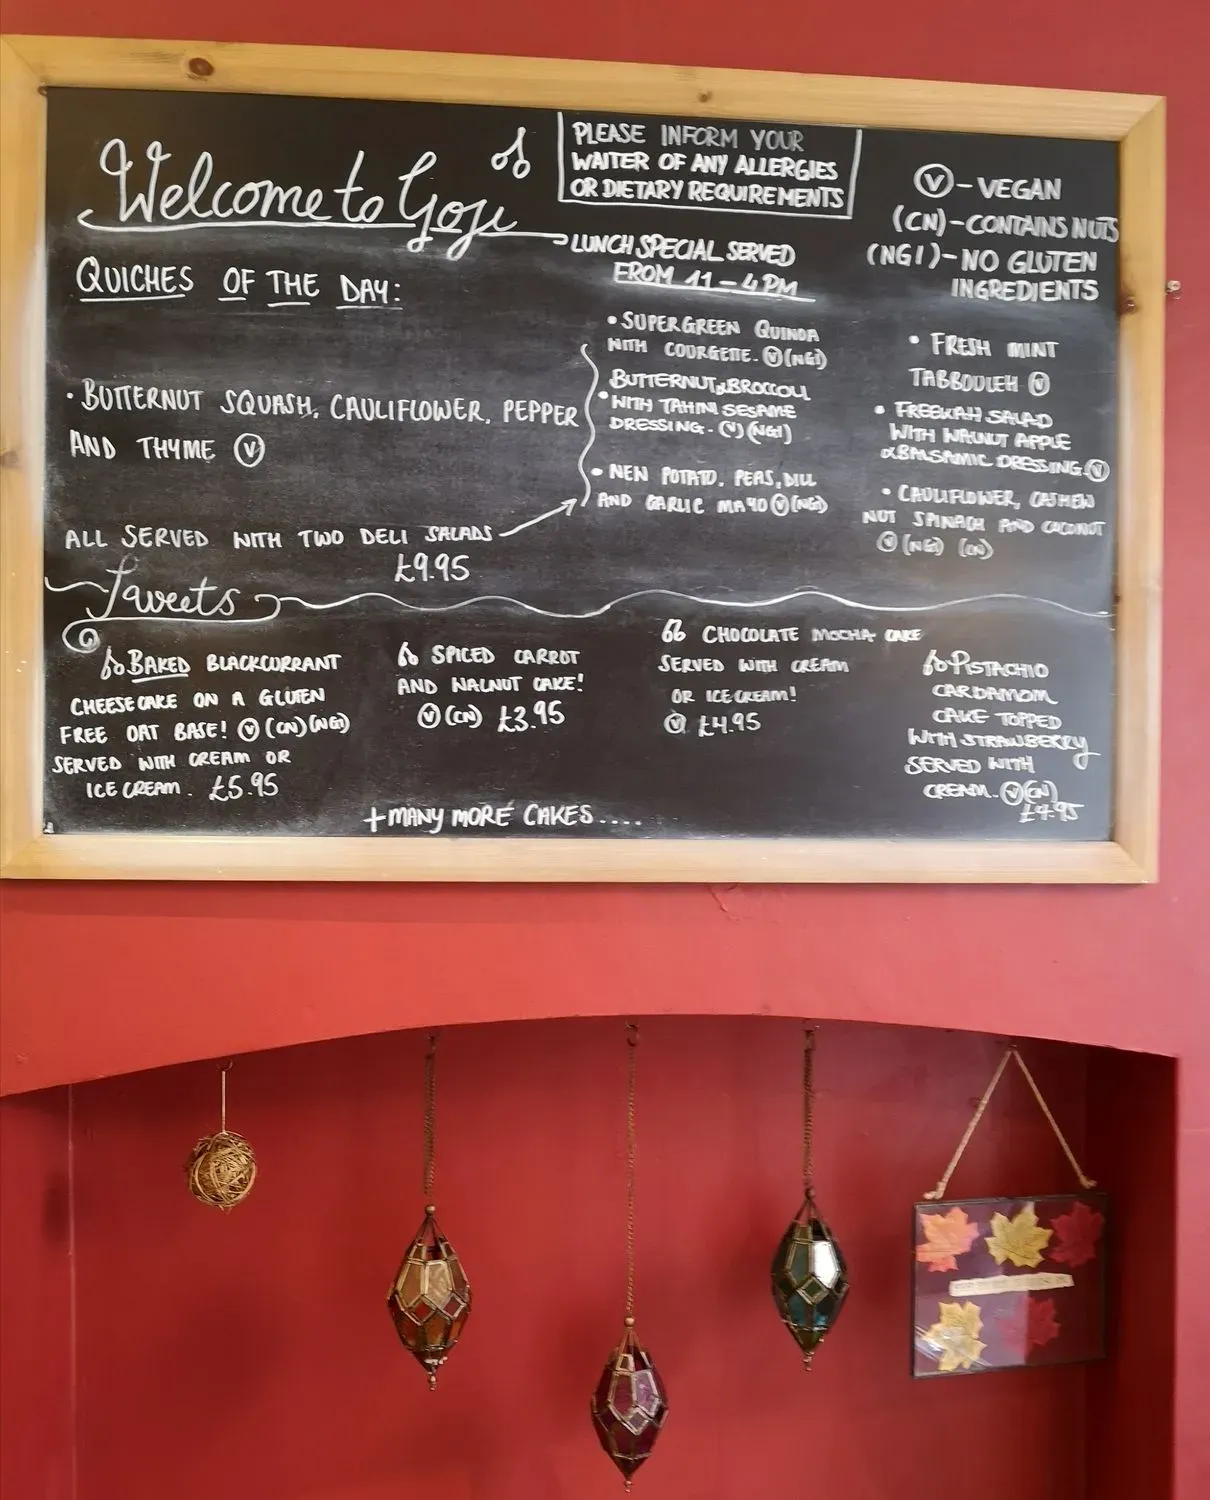 Welcome to Goji
PLEASE INFORM YOUR
WAITER OF ANY ALLERGIES
OR DIETARY REQUIREMENTS
V - VEGAN
(CN) - CONTAINS NUTS
(NGI) - NO GLUTEN
INGREDIENTS
QUICHES OF THE DAY:
• BUTTERNUT SQUASH, CAULIFLOWER, PEPPER
AND THYME V
ALL SERVED WITH TWO DELI SALADS
£9.95
LUNCH SPECIAL SERVED
FROM 11 - 4PM
• SUPERGREEN QUINOA
WITH COURGETTE. V (NGI)
BUTTERNUT & BROCCOLI
• WITH TAHINI SESAME
DRESSING. (V) (NGI)
• NEW POTATO, PEAS, DILL
AND GARLIC MAYO V (NGI)
• FRESH MINT
TABBOULEH V
• FREEKAH SALAD
WITH WALNUT APPLE
& BALSAMIC DRESSING. V
• CAULIFLOWER, CASHEW
NUT SPINACH AND COCONUT
V (NGI) (CN)
Sweets
BAKED BLACKCURRANT
CHEESECAKE ON A GLUTEN
FREE OAT BASE! V (CN) (NGI)
SERVED WITH CREAM OR
ICE CREAM. £5.95
SPICED CARROT
AND WALNUT CAKE!
V (CN) £3.95
CHOCOLATE MOCHA CAKE
SERVED WITH CREAM
OR ICE CREAM!
V £4.95
PISTACHIO
CARDAMOM
CAKE TOPPED
WITH STRAWBERRY
SERVED WITH
CREAM. V (CN)
£4.95
+ MANY MORE CAKES....